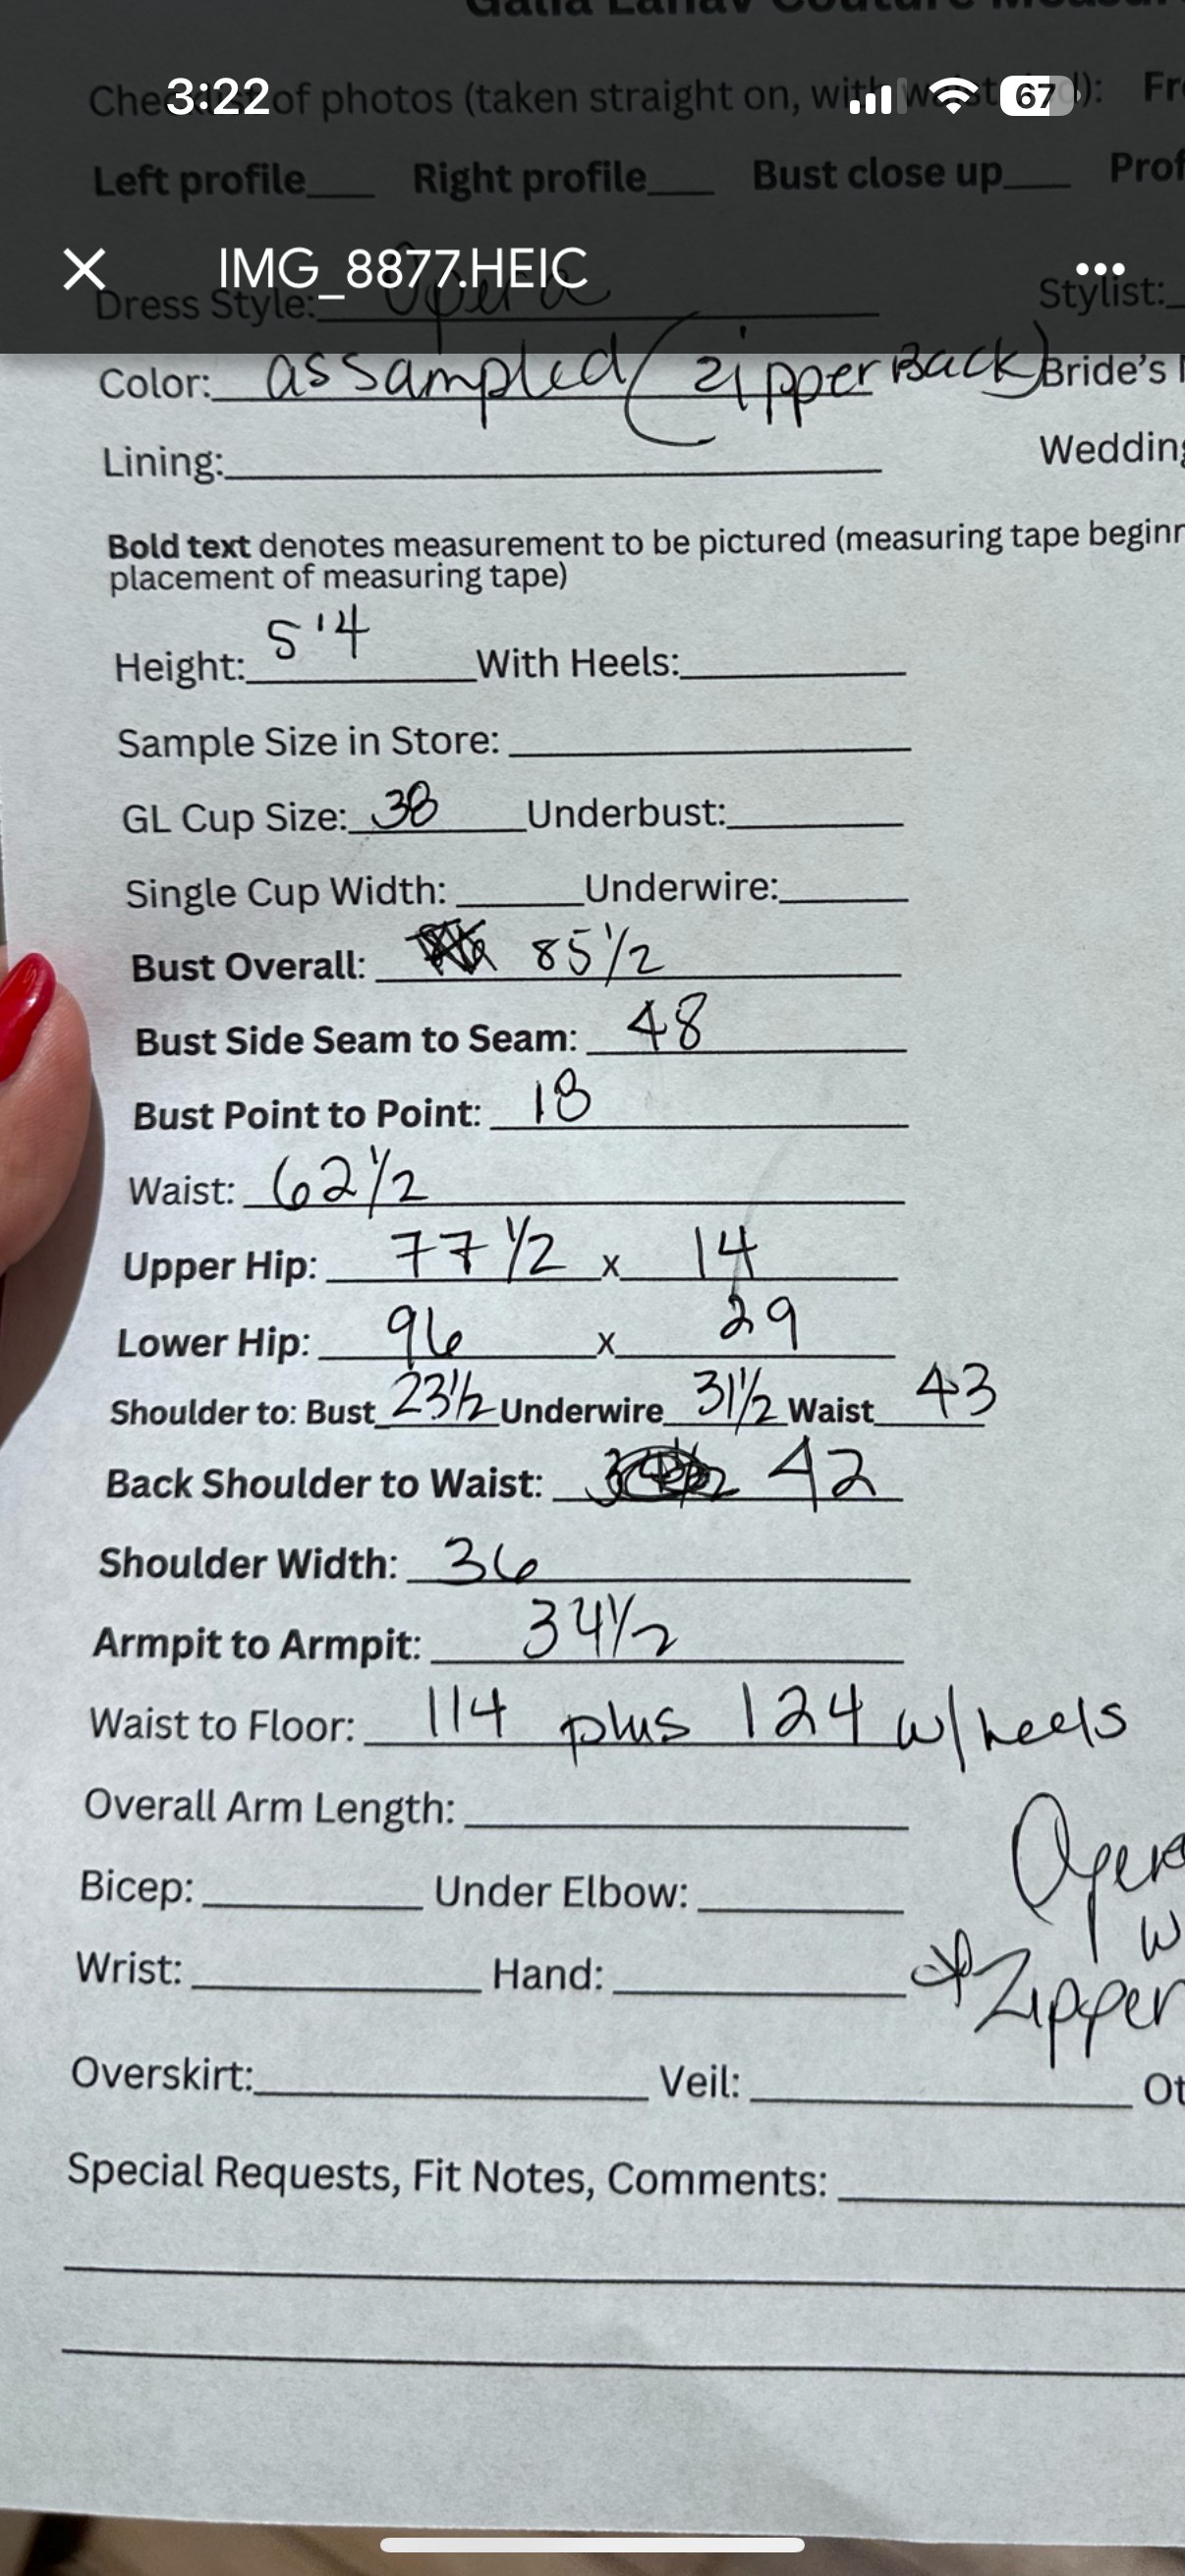 Galia Lahav Couture Measur
3:22 67
Checklist of photos (taken straight on, with waist): Fr
Left profile___ Right profile___ Bust close up___ Prof
IMG_8877.HEIC
Dress Style: Opera Stylist:
Color: as sampled (zipper Back) Bride's
Lining: Wedding
Bold text denotes measurement to be pictured (measuring tape beginn
placement of measuring tape)
Height: 5'4 With Heels:
Sample Size in Store:
GL Cup Size: 38 Underbust:
Single Cup Width: Underwire:
Bust Overall: 85 1/2
Bust Side Seam to Seam: 48
Bust Point to Point: 18
Waist: 62 1/2
Upper Hip: 77 1/2 x 14
Lower Hip: 96 x 29
Shoulder to: Bust 23 1/2 Underwire 31 1/2 Waist 43
Back Shoulder to Waist: 42
Shoulder Width: 36
Armpit to Armpit: 34 1/2
Waist to Floor: 114 plus 124 w/heels
Overall Arm Length:
Bicep: Under Elbow:
Opera
w
Wrist: Hand:
*Zipper
Overskirt: Veil: Ot
Special Requests, Fit Notes, Comments: